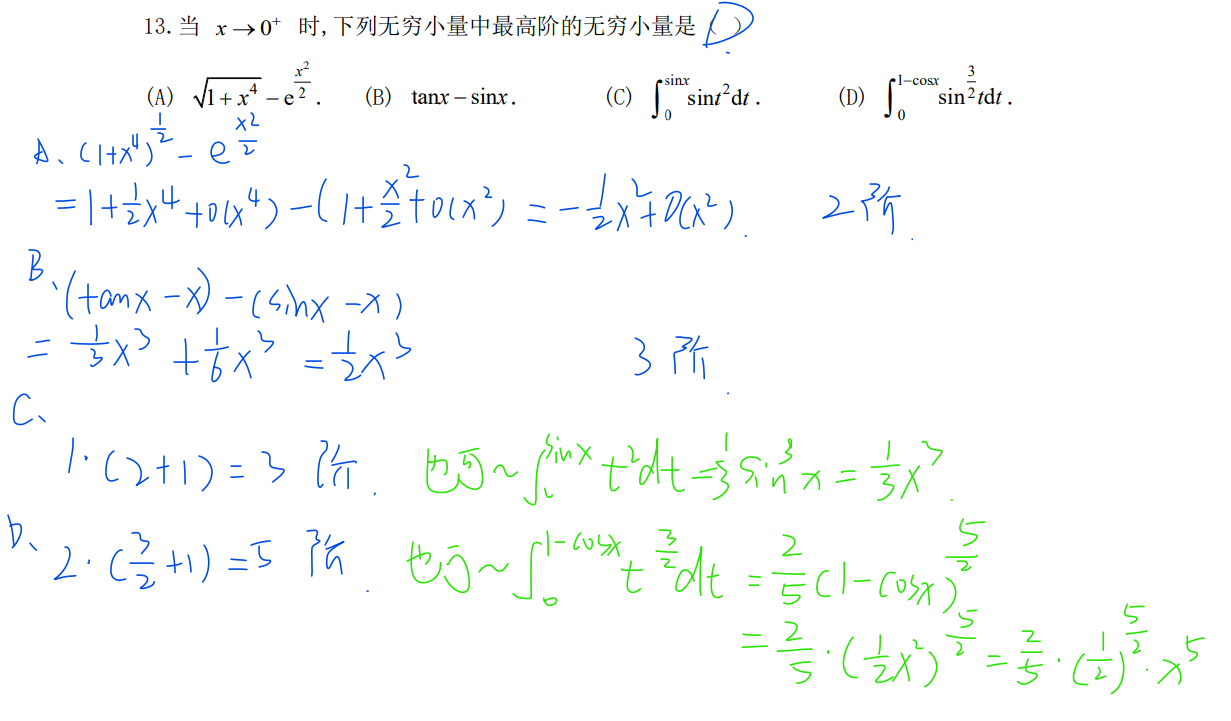 13. 当 x→0⁺ 时, 下列无穷小量中最高阶的无穷小量是 ( D )
(A) √(1+x⁴) − e^(x²/2) . (B) tanx − sinx . (C) ∫₀^(sinx) sint²dt . (D) ∫₀^(1−cosx) sin^(3/2) tdt .
A、(1+x⁴)^(1/2) − e^(x²/2)
= 1+½x⁴+o(x⁴) − (1+x²/2+o(x²) = −½x²+o(x²). 2阶.
B、(tanx−x)−(sinx−x)
= ⅓x³ + ⅙x³ = ½x³ 3阶.
C、
1·(2+1)=3阶. 也可~∫₀^(sinx) t²dt = ⅓sin³x = ⅓x³.
D、2·(3/2+1)=5阶. 也可~∫₀^(1−cosx) t^(3/2)dt = 2/5(1−cosx)^(5/2)
= 2/5·(½x²)^(5/2) = 2/5·(½)^(5/2)·x⁵